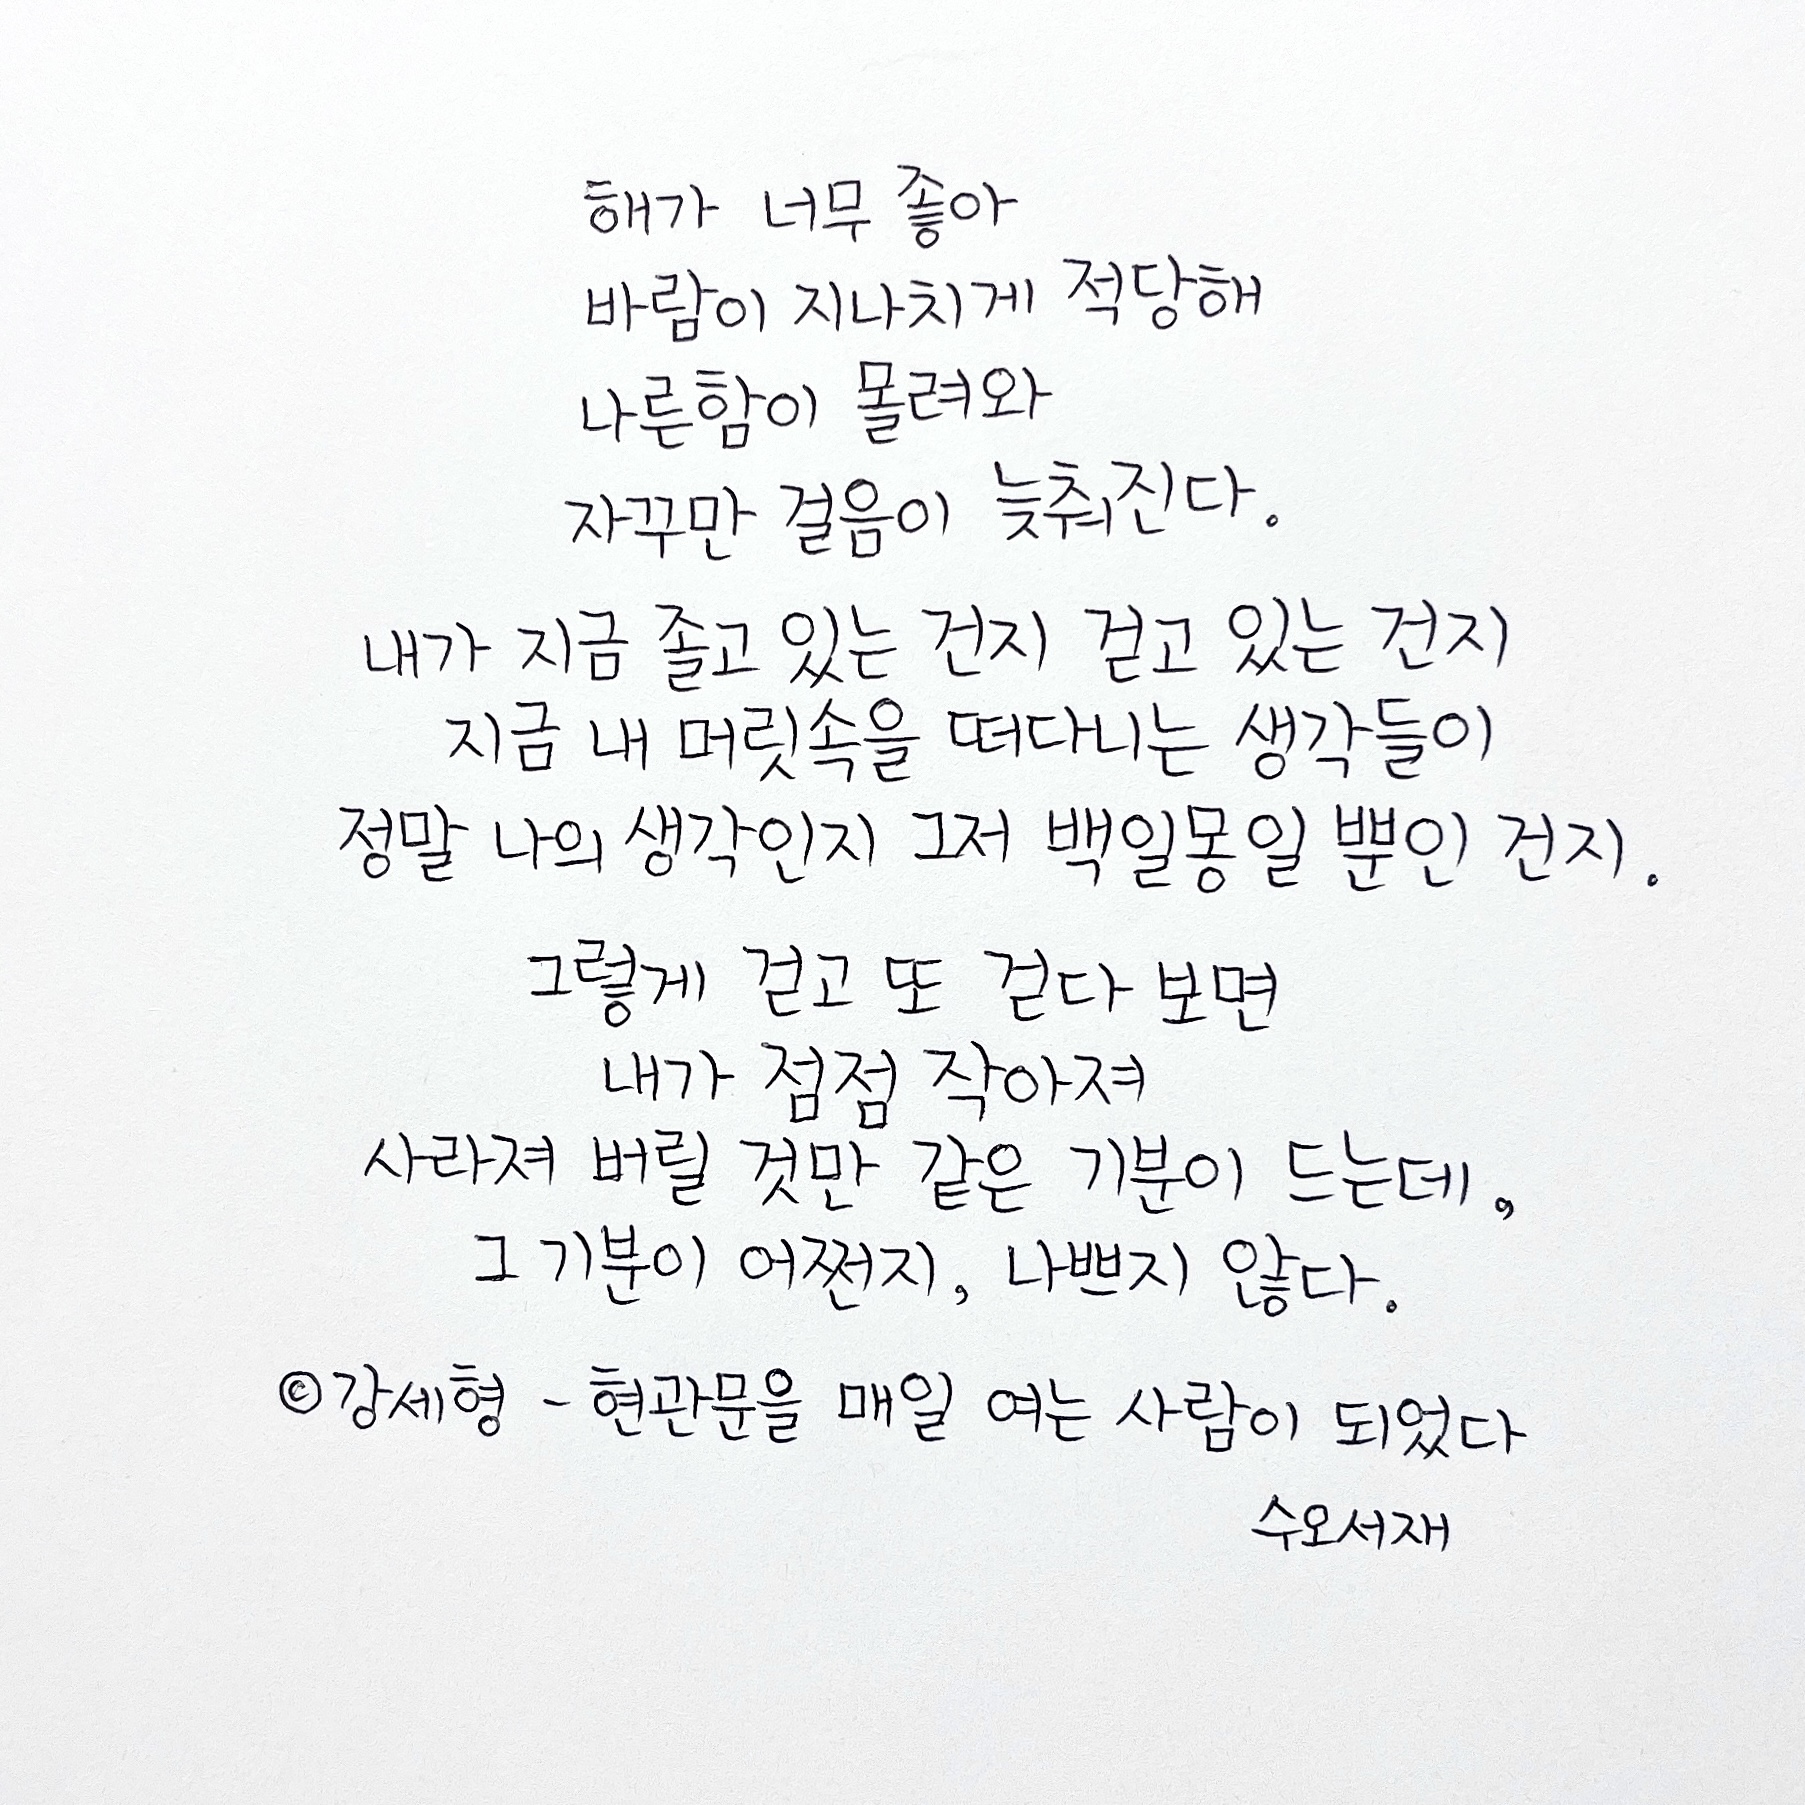 해가 너무 좋아
바람이 지나치게 적당해
나른함이 몰려와
자꾸만 걸음이 늦춰진다.
내가 지금 졸고 있는 건지 걷고 있는 건지
지금 내 머릿속을 떠다니는 생각들이
정말 나의 생각인지 그저 백일몽일 뿐인 건지.
그렇게 걷고 또 걷다 보면
내가 점점 작아져
사라져 버릴 것만 같은 기분이 드는데,
그 기분이 어쩐지, 나쁘지 않다.
©강세형 - 현관문을 매일 여는 사람이 되었다
수오서재